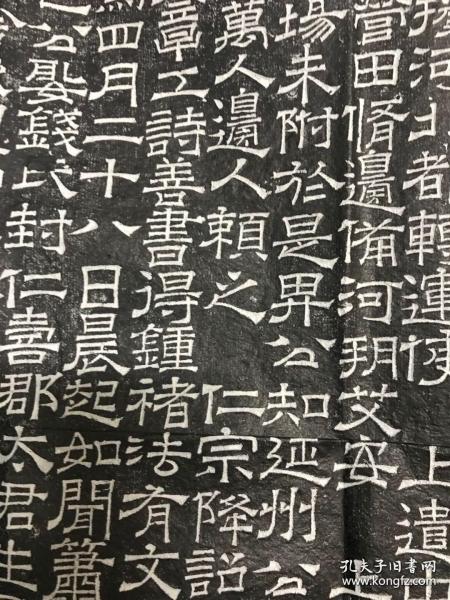 河北都轉運使 上遺
營田脩邊備河朔艾安
場未附於是畀公知延州公
萬人邊人賴之 仁宗降詔
章工詩善書得鍾褚法有文
四月二十八日晨起如聞簫
公娶錢氏封仁壽郡太君生
孔夫子旧书网
www.kongfz.com